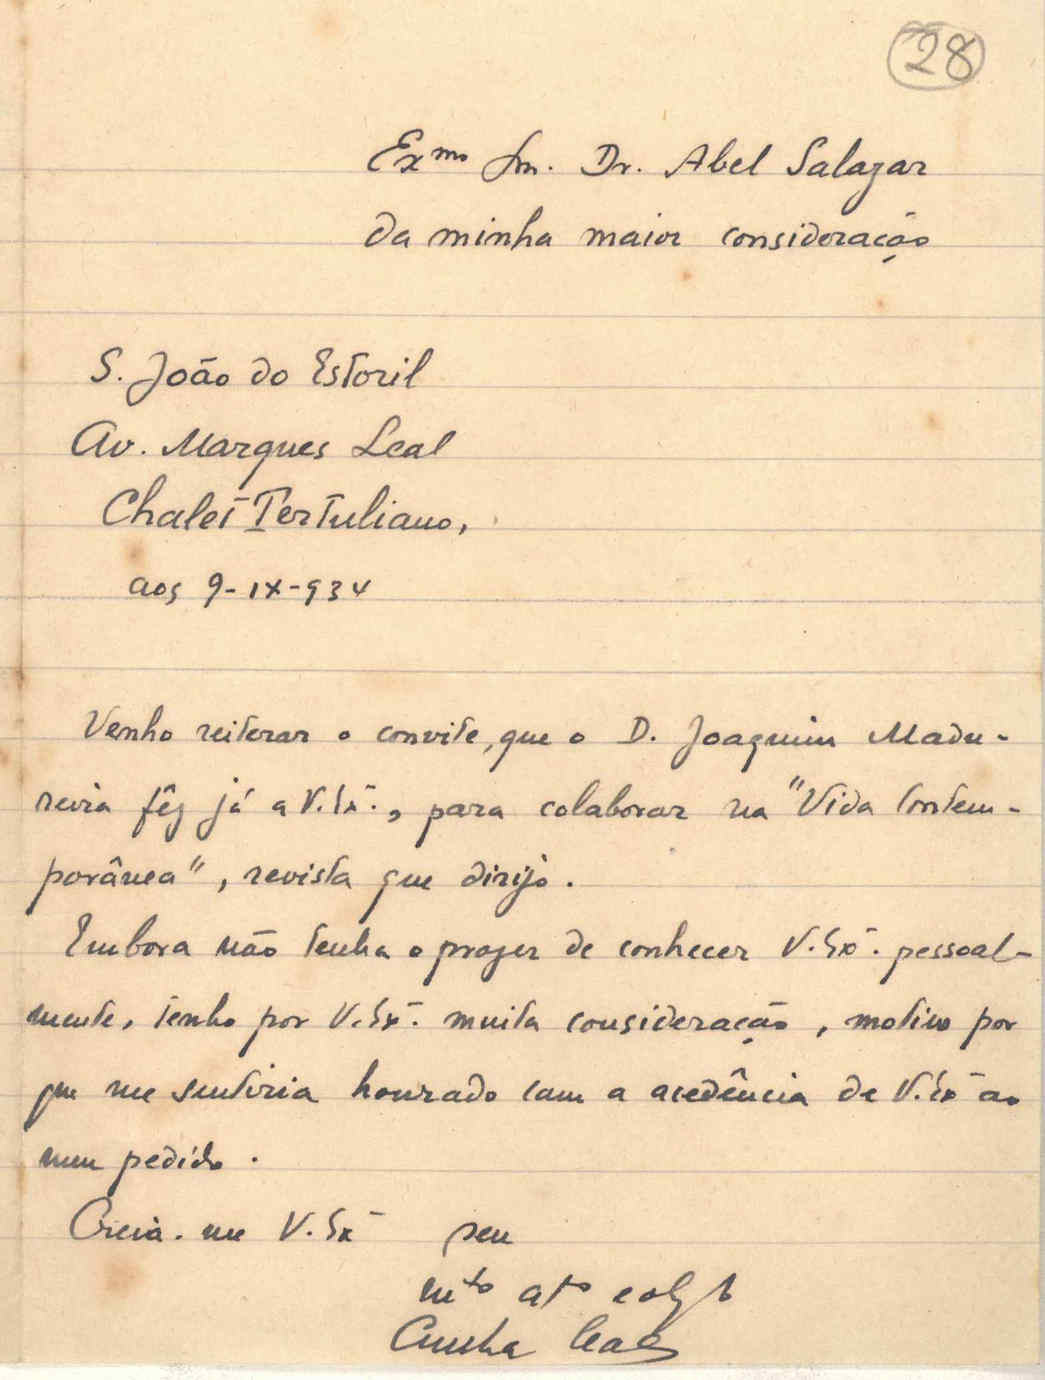 28
Ex.mo Snr. Dr. Abel Salazar
da minha maior consideração
S. João do Estoril
Av. Marques Leal
Chalet Tertuliano,
aos 9-IX-934
Venho reiterar o convite, que o D. Joaquim Madu-
reira fêz já a V. Ex.ª, para colaborar na "Vida Contem-
porânea", revista que dirijo.
Embora não tenha o prazer de conhecer V. Ex.ª pessoal-
mente, tenho por V. Ex.ª muita consideração, motivo por
que me sentiria honrado com a acedência de V. Ex.ª ao
meu pedido.
Creia-me V. Ex.ª seu
m.to at.o
Cunha Leal